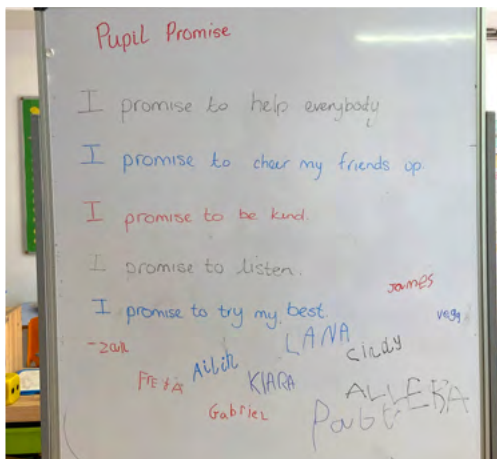 Pupil Promise
I promise to help everybody
I promise to cheer my friends up.
I promise to be kind.
I promise to listen.
I promise to try my best.
James
LANA
Cindy
KIARA
Gabriel